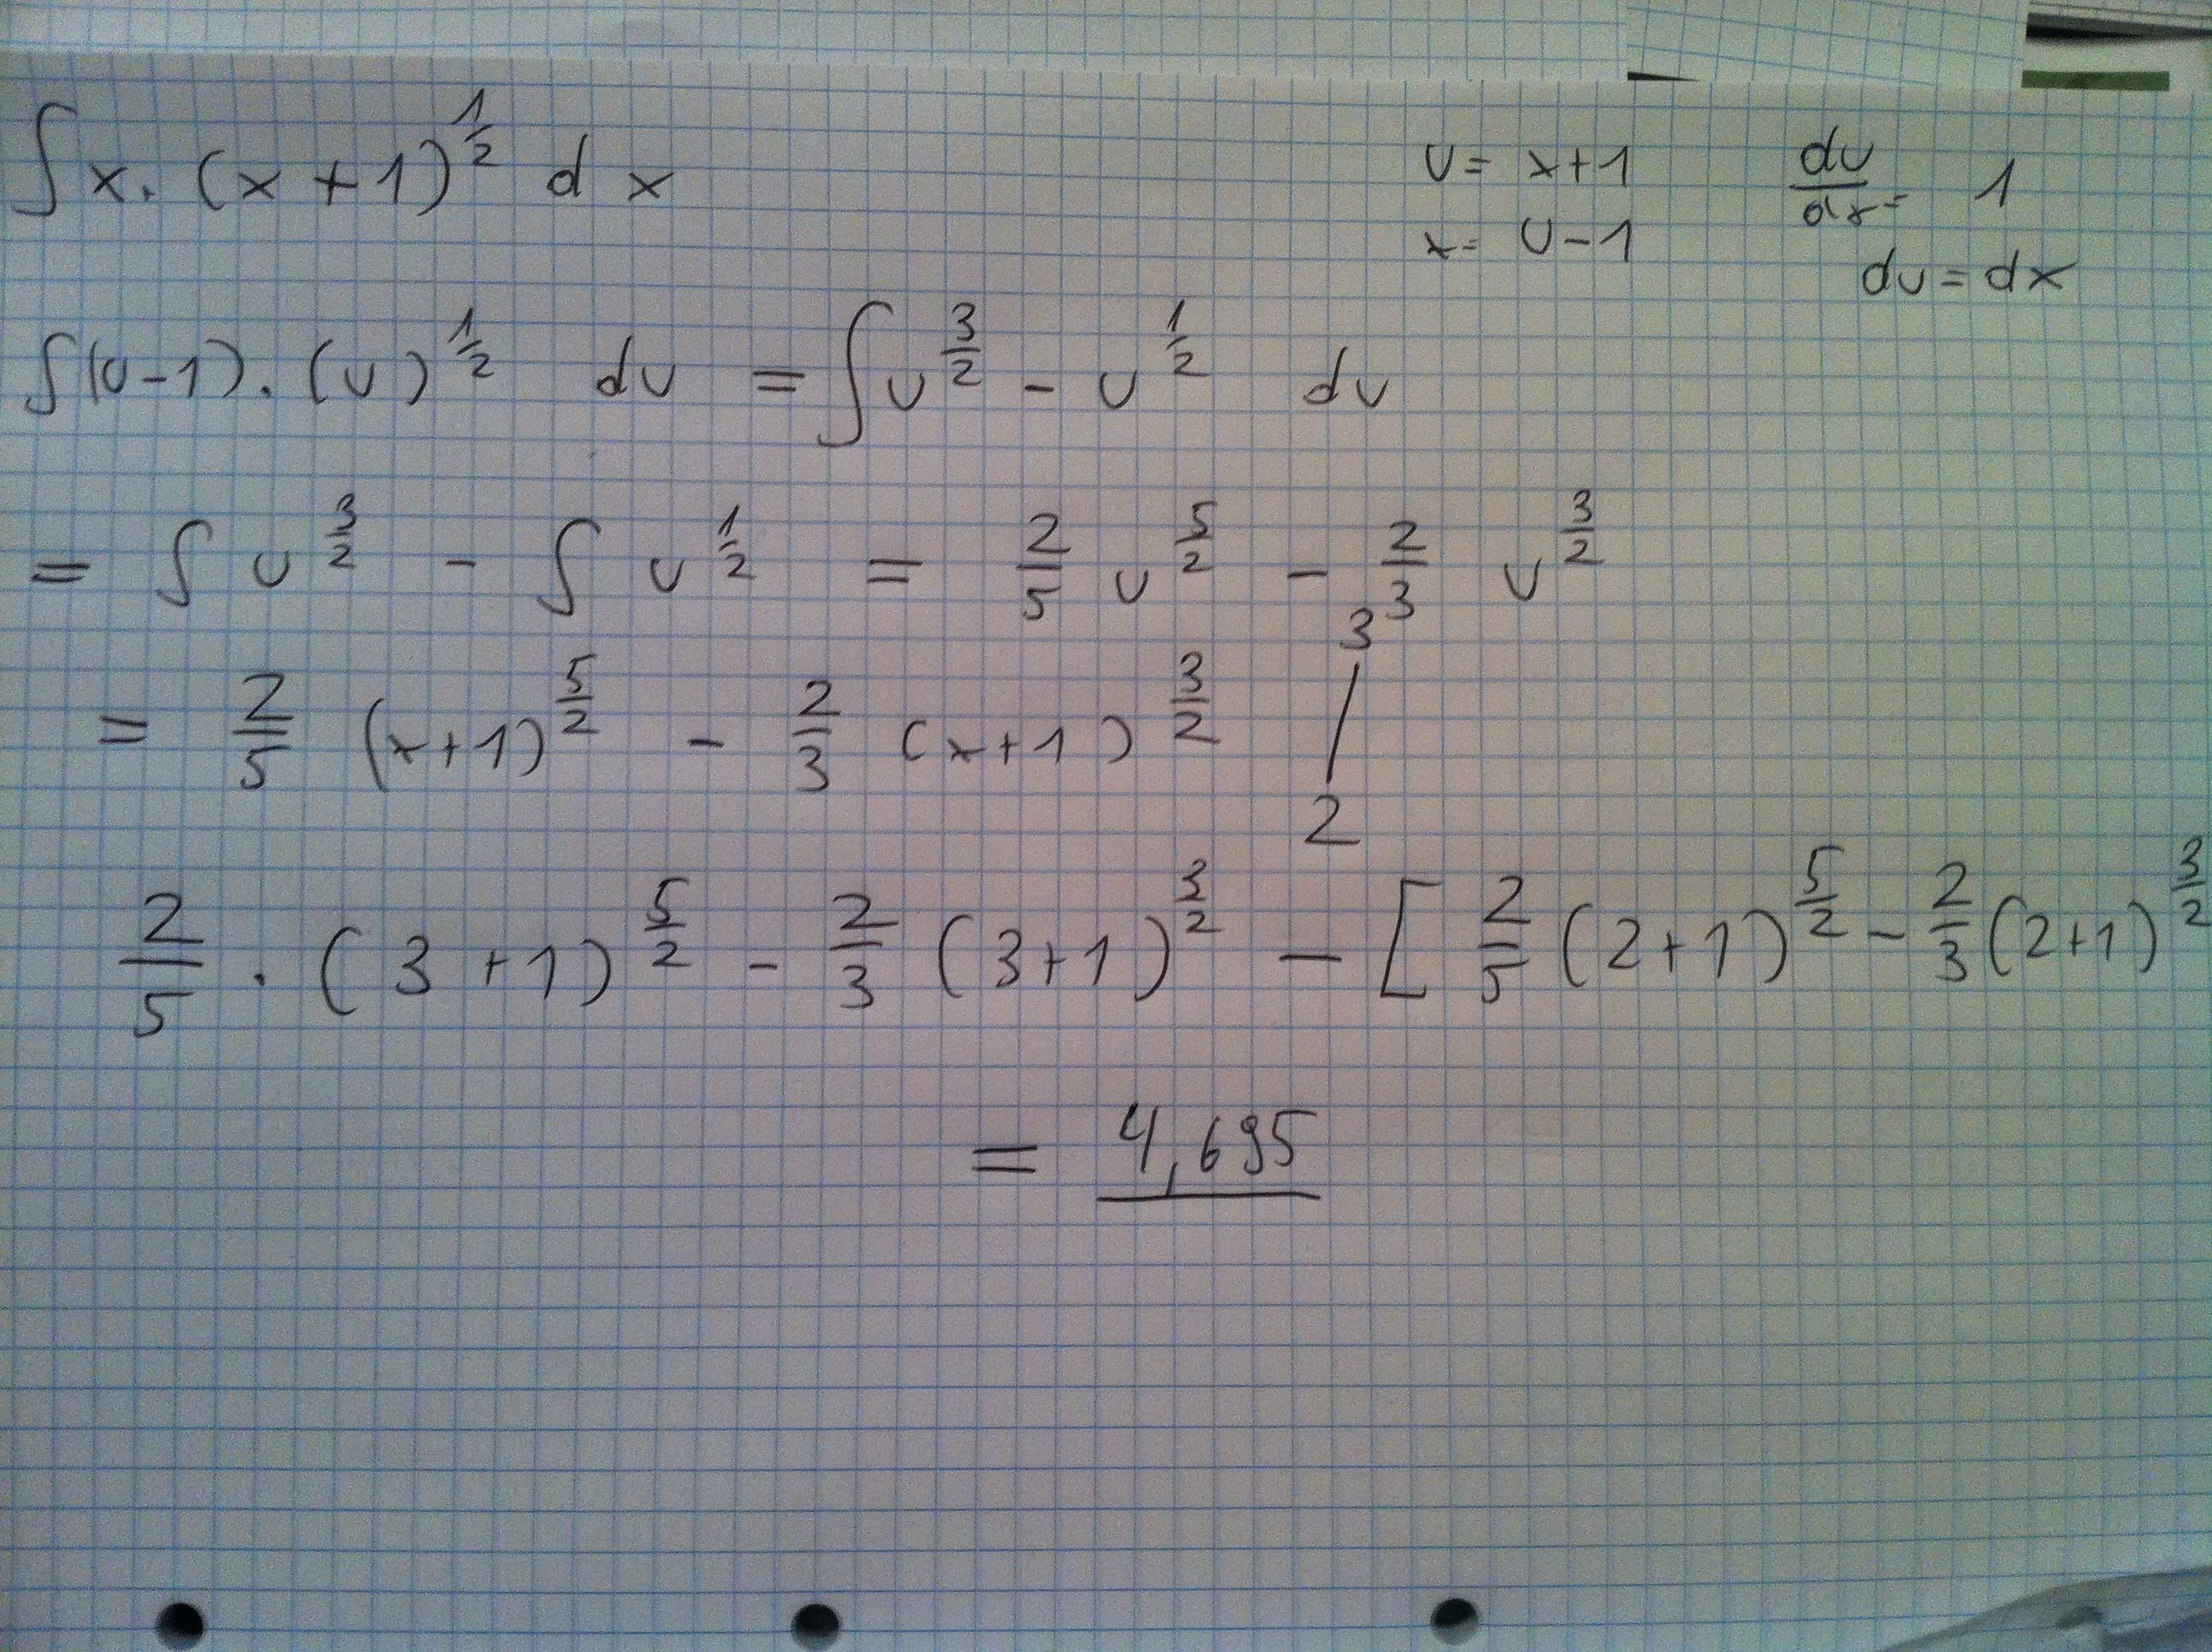 ∫ x · (x + 1)^(1/2) d x
u = x+1
x = u-1
du/dx = 1
du = dx
∫(u-1) · (u)^(1/2) du = ∫ u^(3/2) - u^(1/2) du
= ∫ u^(3/2) - ∫ u^(1/2) = 2/5 u^(5/2) - 2/3 u^(3/2)
= 2/5 (x+1)^(5/2) - 2/3 (x+1)^(3/2) |_2^3
2/5 · (3+1)^(5/2) - 2/3 (3+1)^(3/2) - [ 2/5 (2+1)^(5/2) - 2/3 (2+1)^(3/2)
= 4,695